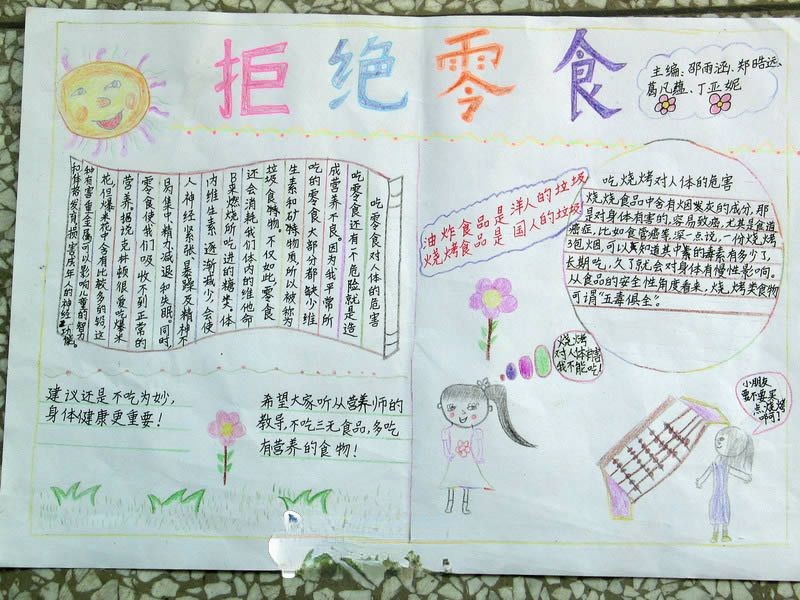 拒绝零食
主编：邵雨涵、郑晧远、
葛凡蕴、丁亚妮
吃零食对人体的危害
吃零食还有一个危险就是造
成营养不良。因为我平常所
吃的零食大部分都缺少维
生素和矿物质所以被称为
垃圾食物。不仅如此，零食
还会消耗我们体内的维他命
B来燃烧所吃进的糖类。体
内维生素逐渐减少，会使
人神经紧张暴躁及精神不
易集中，精力减退和失眠。同时，
零食使我们吸收不到正常的
营养。据说克林顿很爱吃爆米
花，但爆米花中含有比较多的铅，这
种有害重金属可以影响儿童的智力
和体格发育，损害成年人的神经功能。
油炸食品是洋人的垃圾
烧烤食品是国人的垃圾
吃烧烤对人体的危害
烧烧食品中含有烟发灰的成分，那
是对身体有害的，容易致癌，尤其是食道
癌症，比如食管癌等，深一点说，一份烧烤
3包烟，可以知道其中毒的毒素有多少了，
长期吃，久了就会对身体有慢性影响。
从食品的安全性角度看来，烧烤类食物
可谓“五毒俱全”。
烧烤
对人体有害
我不能吃！
小朋友
要不要来
点烧烤
啊啊！
建议还是不吃为妙，
身体健康更重要！
希望大家听从营养师的
教导，不吃三无食品，多吃
有营养的食物！